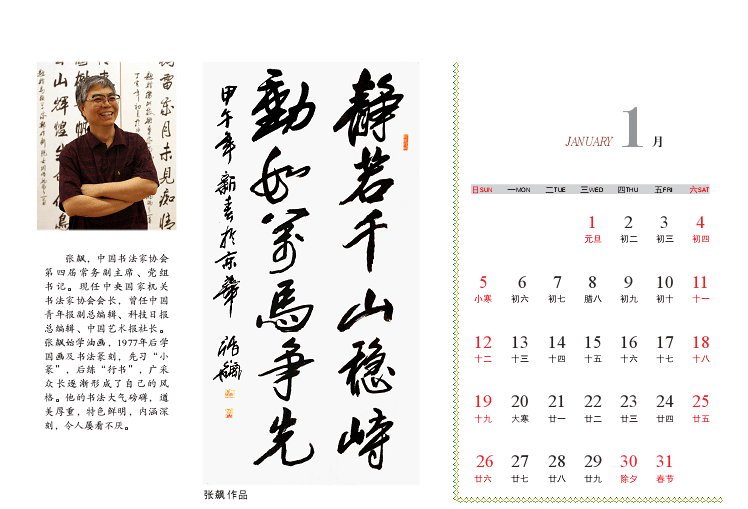 张飙，中国书法家协会
第四届常务副主席、党组
书记。现任中央国家机关
书法家协会会长，曾任中国
青年报副总编辑、科技日报
总编辑、中国艺术报社长。
张飙始学油画，1977年后学
国画及书法篆刻，先习“小
篆”，后练“行书”，广采
众长逐渐形成了自己的风
格。他的书法大气磅礴，遒
美厚重，特色鲜明，内涵深
刻，令人屡看不厌。
靜若千山穩峙
動如萬馬争先
甲午年新春於京華
张飙作品
JANUARY 1 月
日SUN 一MON 二TUE 三WED 四THU 五FRI 六SAT
1 2 3 4
元旦 初二 初三 初四
5 6 7 8 9 10 11
小寒 初六 初七 腊八 初九 初十 十一
12 13 14 15 16 17 18
十二 十三 十四 十五 十六 十七 十八
19 20 21 22 23 24 25
十九 大寒 廿一 廿二 廿三 廿四 廿五
26 27 28 29 30 31
廿六 廿七 廿八 廿九 除夕 春节